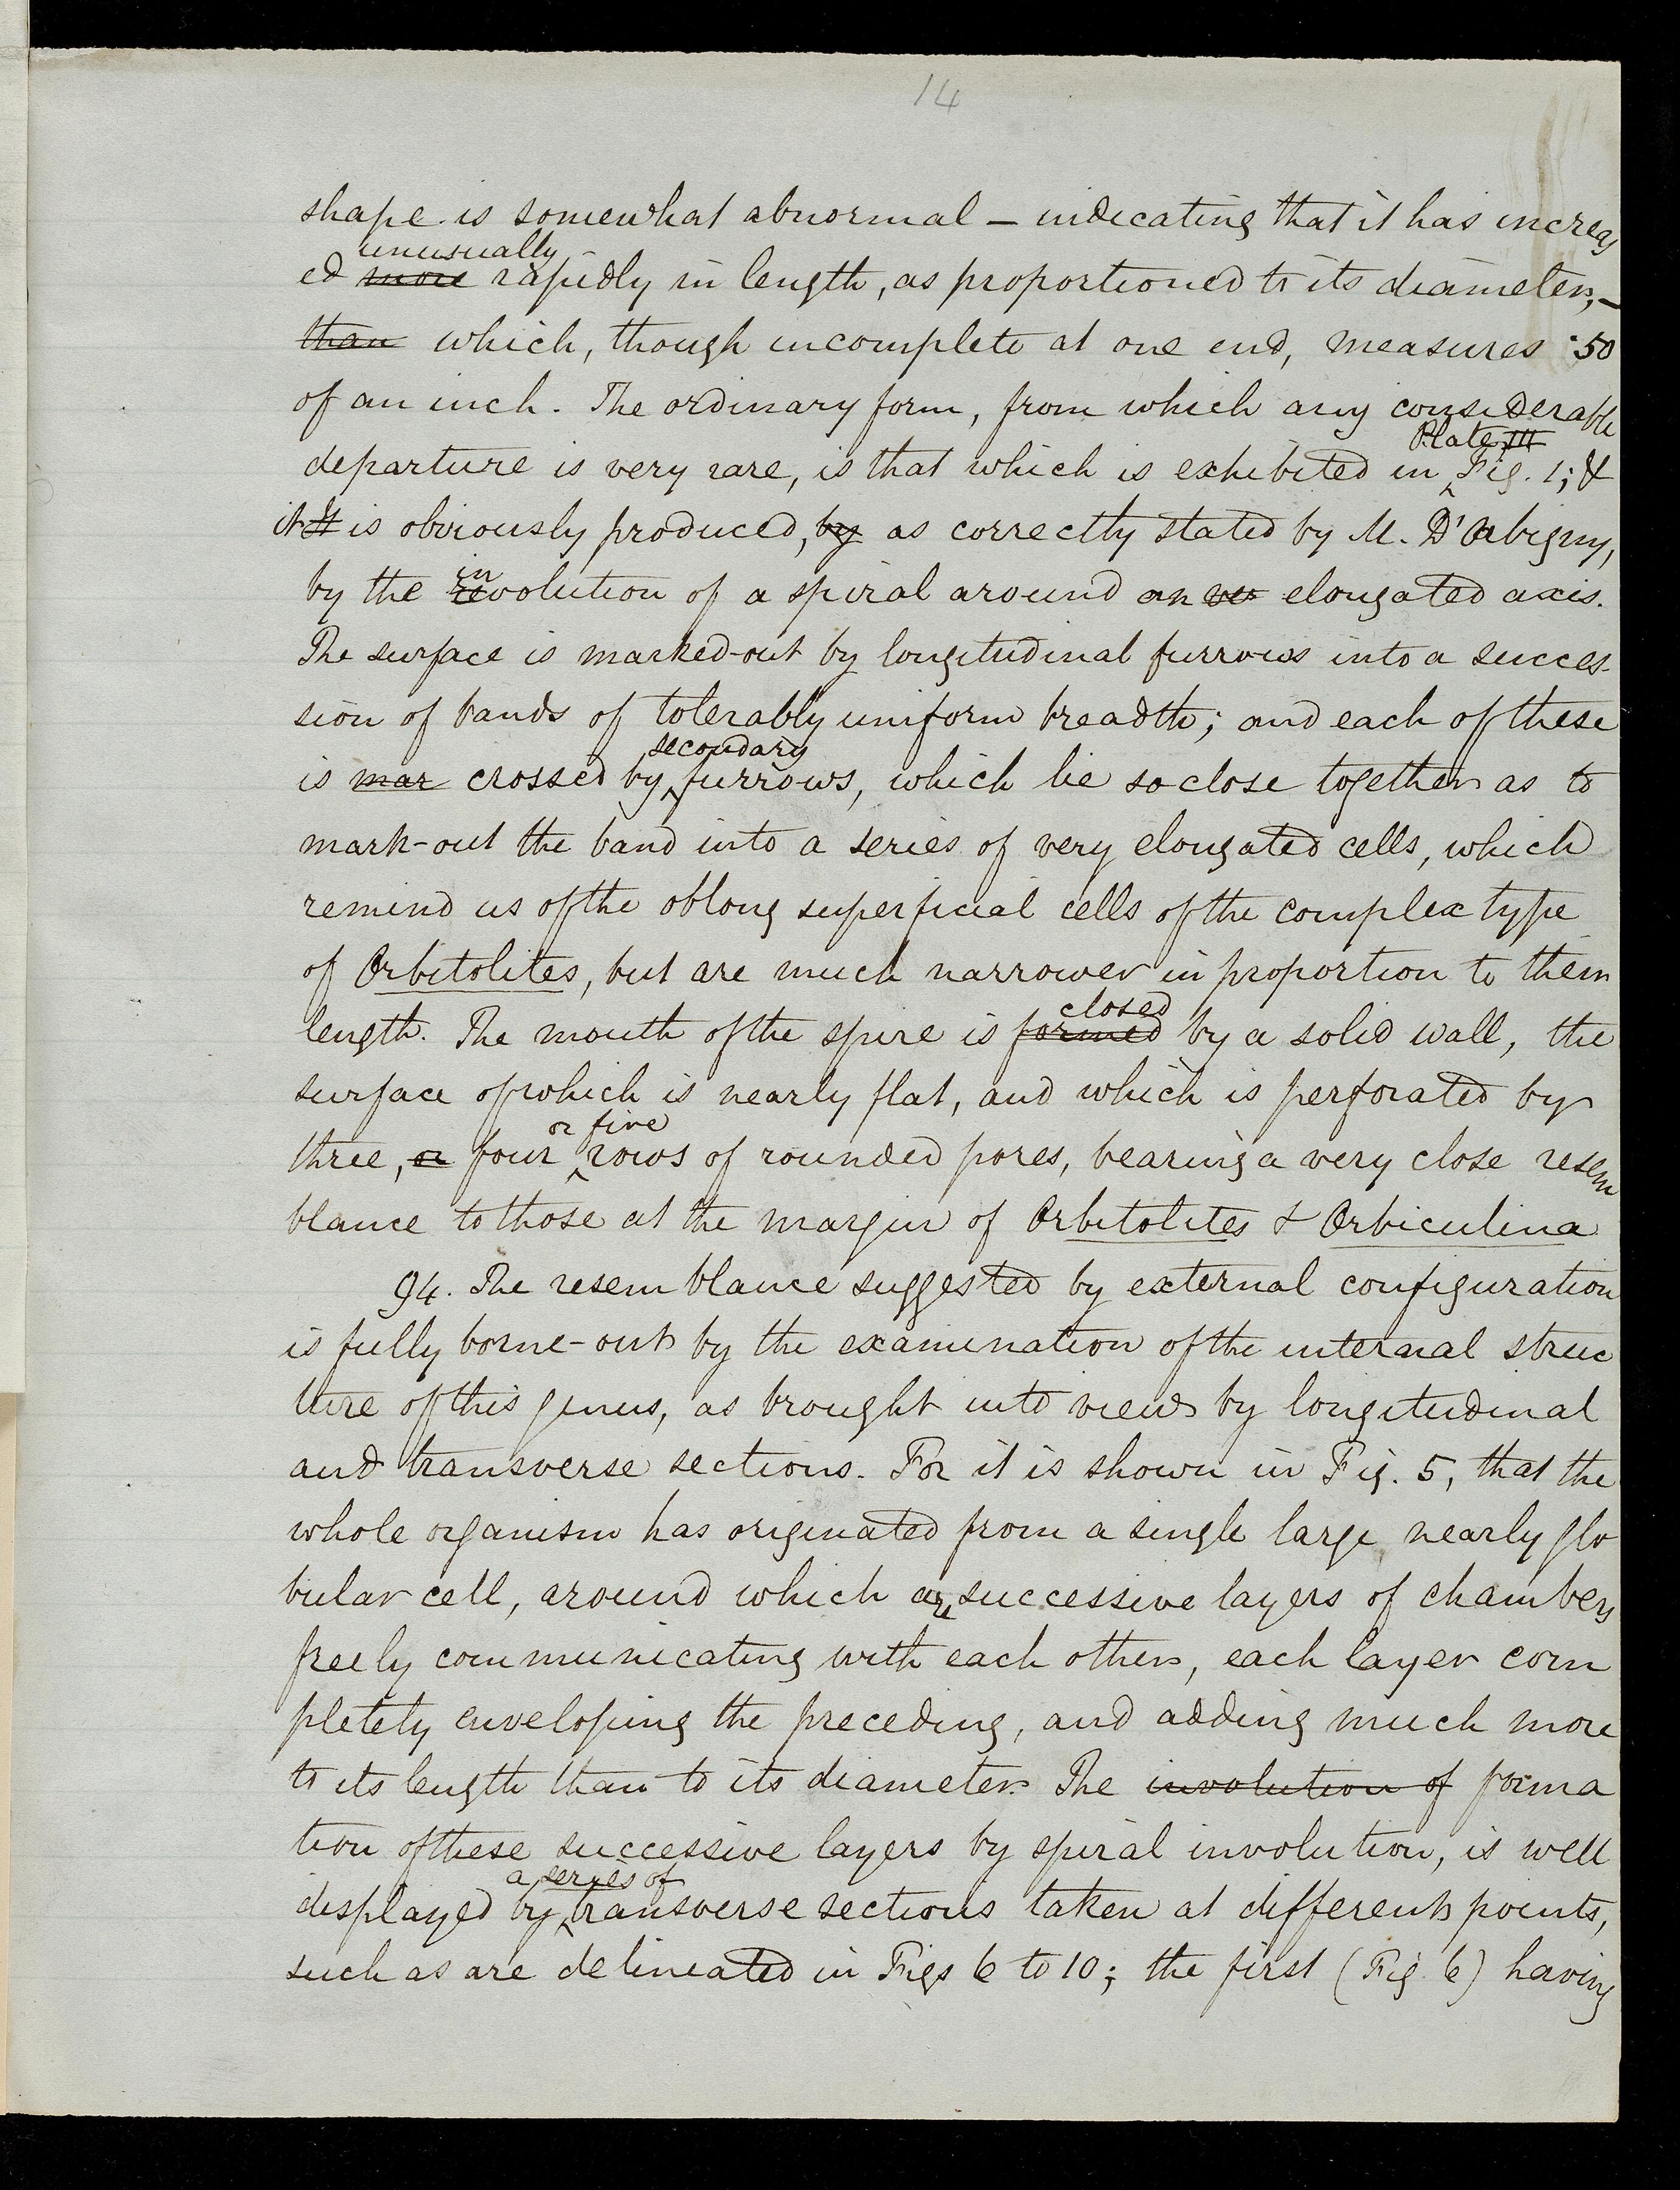 14
shape is somewhat abnormal — indicating that it has increas
unusually
ed more rapidly in length, as proportioned to its diameter, —
than which, though incomplete at one end, measures ·50
of an inch. The ordinary form, from which any considerable
Plate III
departure is very rare, is that which is exhibited in ‸ Fig. 1; &
it It is obviously produced, by as correctly stated by M. D'Orbigny,
in
by the revolution of a spiral around an elongated axis.
The surface is marked-out by longitudinal furrows into a succes-
sion of bands of tolerably uniform breadth; and each of these
secondary
is mar crossed by ‸ furrows, which lie so close together as to
mark-out the band into a series of very elongated cells, which
remind us of the oblong superficial cells of the complex type
of Orbitolites, but are much narrower in proportion to their
closed
length. The mouth of the spire is formed by a solid wall, the
surface of which is nearly flat, and which is perforated by
or five
three, or four ‸ rows of rounded pores, bearing a very close resem
blance to those at the margin of Orbitolites & Orbiculina
94. The resemblance suggested by external configuration
is fully borne-out by the examination of the internal struc
ture of this genus, as brought into view by longitudinal
and transverse sections. For it is shown in Fig. 5, that the
whole organism has originated from a single large nearly glo
bular cell, around which are successive layers of chambers
freely communicating with each other, each layer com
pletely enveloping the preceding, and adding much more
to its length than to its diameter. The involution of forma
tion of these successive layers by spiral involution, is well
a series of
displayed by ‸ transverse sections taken at different points,
such as are delineated in Figs 6 to 10; the first (Fig. 6) having